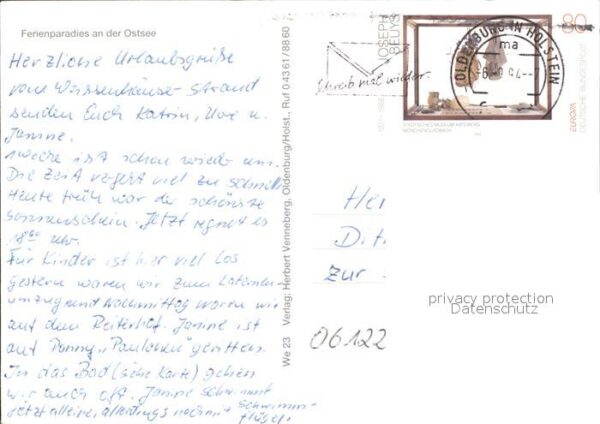 Ferienparadies an der Ostsee
Herzliche Urlaubsgrüße
vom Weissenhäuser Strand
senden Euch Katrin, Uwe u.
Janine.
1 Woche ist schon wieder um.
Die Zeit vergeht viel zu schnell.
Heute früh war der schönste
Sonnenschein. Jetzt regnet es
18 00 Uhr.
Für Kinder ist hier viel los
gestern waren wir zum Laternen
umzug und Nachmittag waren wir
auf dem Reiterhof. Janine ist
auf Ponny geritten.
In das Bad (siehe Karte) gehen
wir auch oft. Janine schwimmt
jetzt alleine, allerdings noch mit Schwimm
flügel.
We 23 Verlag: Herbert Venneberg, Oldenburg/Holst., Ruf 0 43 61 / 88 60
Schreib mal wieder.
OLDENBURG IN HOLSTEIN
ma
JOSEPH BEUYS
80
DEUTSCHE BUNDESPOST
EUROPA
STÄDTISCHES MUSEUM ABTEIBERG
MÖNCHENGLADBACH
Her
Dit
zur
privacy protection
Datenschutz
06122